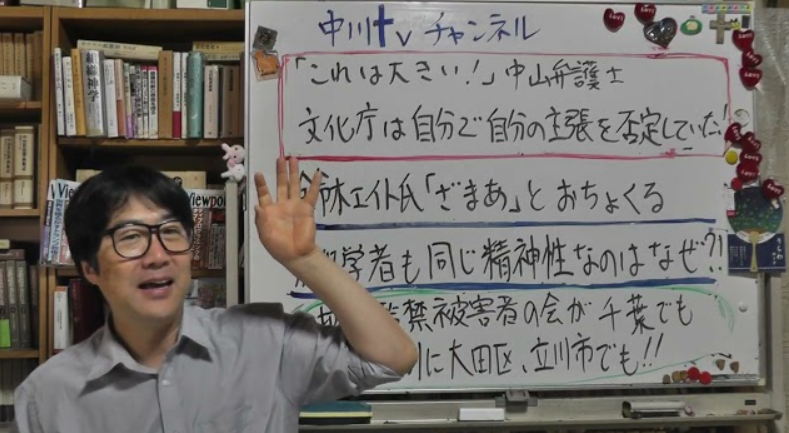 中川tvチャンネル
「これは大きい！」中山弁護士
文化庁は自分で自分の主張を否定していた！
木エイト氏「ざまあ」とおちょくる
学者も同じ精神性なのはなぜ？！
監禁被害者の会が千葉でも
に大田区、立川市でも！！
組織神学
Viewpoint
Love